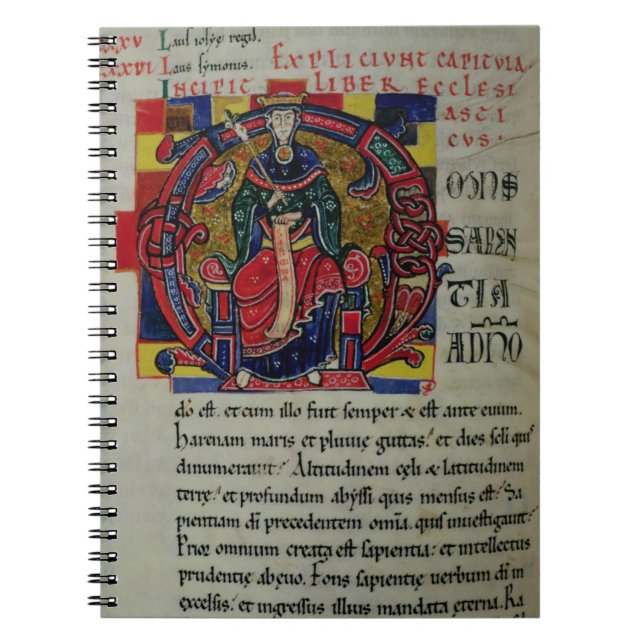 XXXV L Laus iosye regis.
XXXVI L Laus symonis. EXPLICIUNT CAPITULA
INCIPIT LIBER ECCLESI
ASTI
CVS:
OMNS
SAPIEN
TIA
A DNO
dõ est. et cum illo fuit semper & est ante euum.
Harenam maris et pluuiȩ guttas. et dies scłi quis
dinumerauit? Altitudinem cȩli & latitudinem
terrȩ. et profundum abyssi quis mensus est? Sa
pientiam dĩ precedentem omĩa. quis inuestigauit?
Prior omnium creata est sapientia. et intellectus
prudentiȩ ab ȩuo. Fons sapientiȩ uerbum dĩ in
excelsis. et ingressus illius mandata ȩterna. Ra